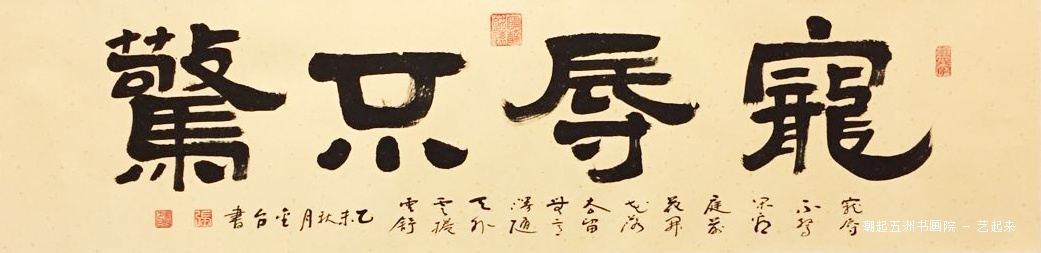 寵辱不驚
寵辱
不驚
閑看
庭前
花開
花落
去留
無意
漫隨
天外
雲捲
雲舒
乙未秋月台書
潮起五洲书画院 - 艺起来